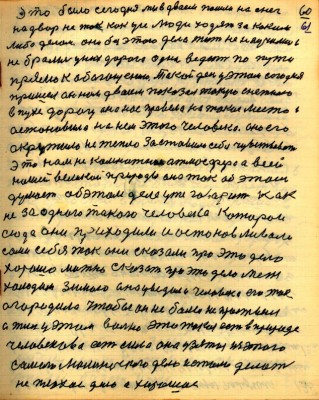 Это было сегодня мы двоем пошли на снег 60
на двор не так как уже люди ходят за каким 61
либо делом. оно бы этого дела тот не научились
не брали у них дорога одна ведет по пути
прямо к обагощению. Такой день у этом сегодня
пришел он нам двоим показал такую снежного
в пухе дорогу она нас привела на такое место и
остановило на нем этого человека. оно его
окружило не тепло заставило себе чувствовать
Это нам не комнатного атмосфера а всей
нашей великой природы она так об этом
думает об этом деле уже говорит Как
не за одного такого человека Которое
сюда они приходили и остоновливало
само себя так они сказали про это дело
хорошо можно сказать про это дело меж
холодом зимнего оно увидело человека его так
огородило чтобы он не боле не простывал
а жил у этом вално это такое есть в природе
человекова есть сила она взяты из этого
самого дело хотом делает
не плохое дело а хорошие